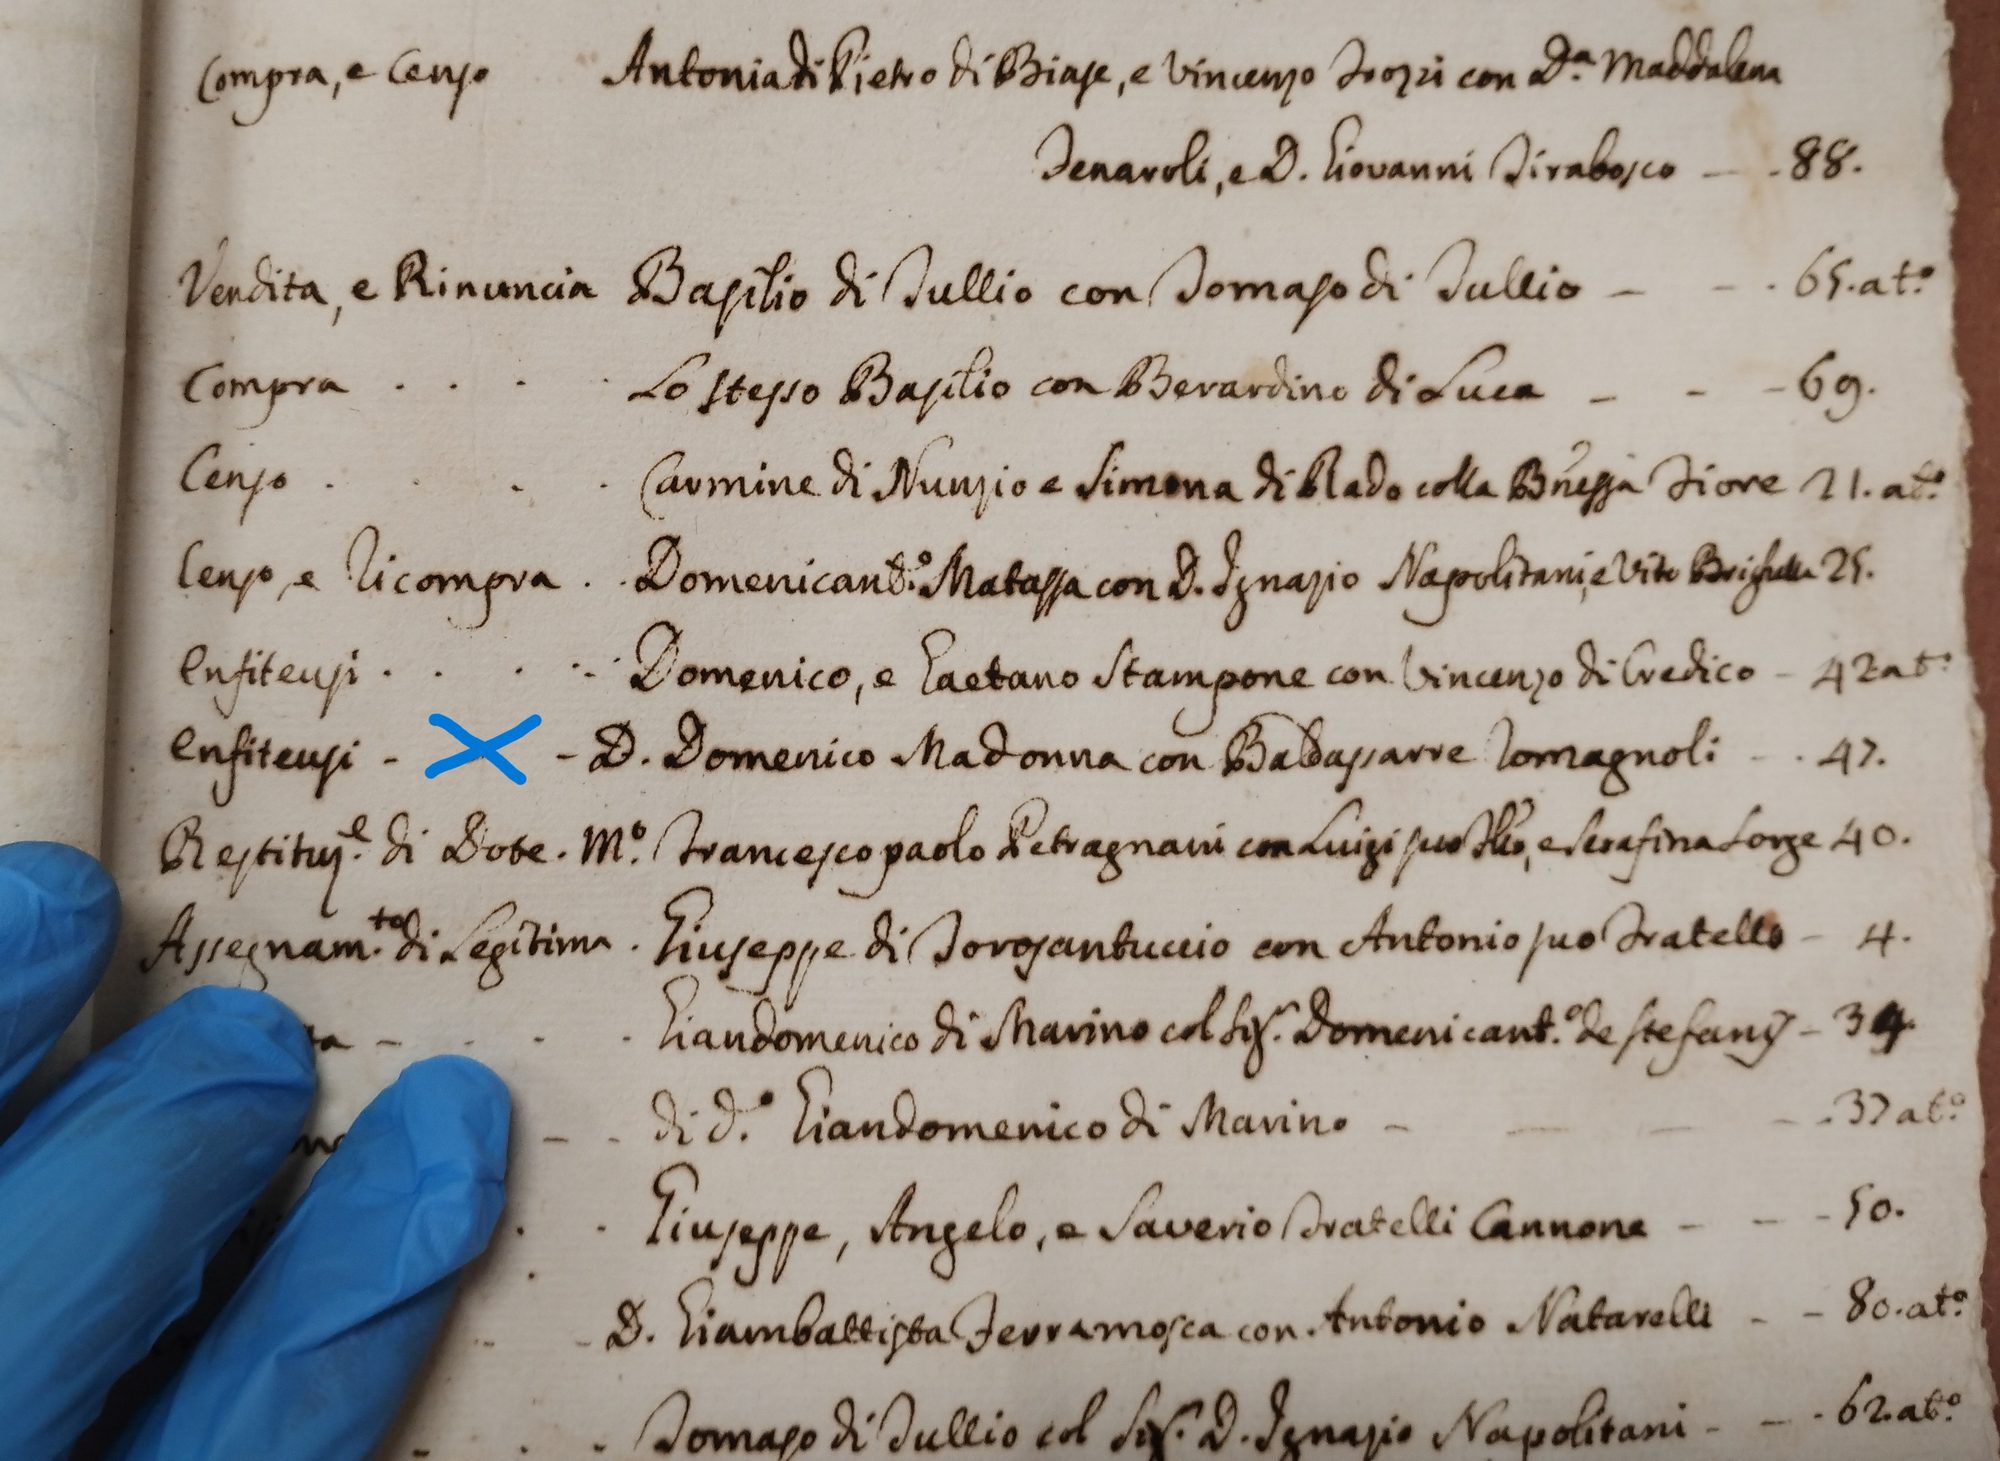 Compra, e Censo Antonia di Pietro di Biase, e Vincenzo Trozzi con D.ª Maddalena
Tenaroli, e D. Giovanni Tirabosco - - 88.
Vendita, e Rinuncia Basilio di Tullio con Tomaso di Tullio - - . 65. at.º
Compra . . . . Lo stesso Basilio con Berardino di Luca - - - 69.
Censo . . . . Carmine di Nunzio e Simona di Rado colla Fiore 21. at.º
Censo, e Ricompra . . Domenicant.º Matassa con D. Ignazio Napolitani, e Vito 25.
Enfiteusi . . . . . Domenico, e Gaetano Stampone con Vincenzo di Credico - 42 at.º
Enfiteusi - - D. Domenico Madonna con Baldassarre Romagnoli - . 47.
Restituz.e di Dote . M.º Francescopaolo Petragnani con Luigi suo e Serafina Sorge 40.
Assegnam.to di Legitima . Giuseppe di Torosantuccio con Antonio suo Fratello - 4.
ta - . . . Giandomenico di Marino col Sig.r Domenicant.º de Stefanis - 34
- - di d.º Giandomenico di Marino - - - - . 37 at.º
. . Giuseppe, Angelo, e Saverio Fratelli Cannone - - - 50.
- - D. Giambattista Terramosca con Antonio Natarelli - - 80. at.º
- . . Tomaso di Tullio col Sig.r D. Ignazio Napolitani - - . 62. at.º